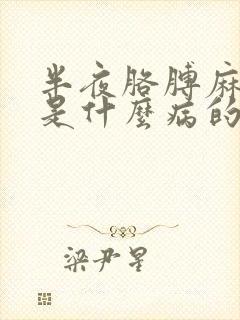 半夜胳膊麻
是什麼病的
梁尹星